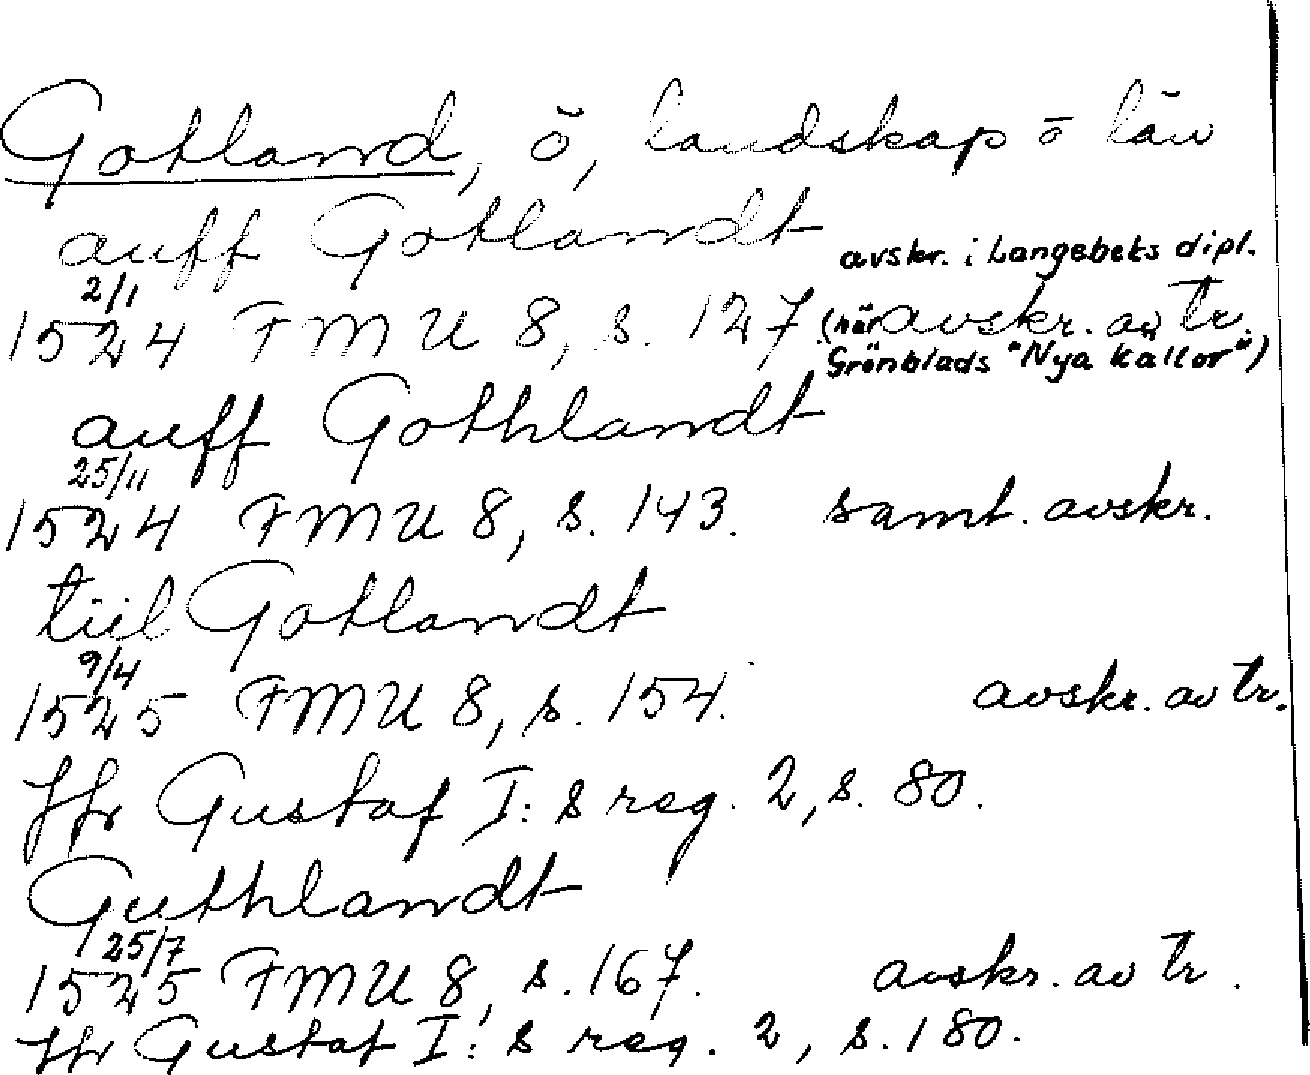 Gotland, ö, landskap o län
auff Gotlandt
avskr. i Langebeks dipl.
2/1
1524 FMU 8, s. 127 (här avskr. av tr.
Grönblads "Nya källor")
auff Gothlandt
25/11
1524 FMU 8, s. 143. samt. avskr.
tiil Gotlandt
9/4
1525 FMU 8, s. 154. avskr. av tr.
Jfr Gustaf I:s reg. 2, s. 80.
Guthlandt
25/7
1525 FMU 8, s. 167. avskr. av tr.
Jfr Gustaf I:s reg. 2, s. 180.